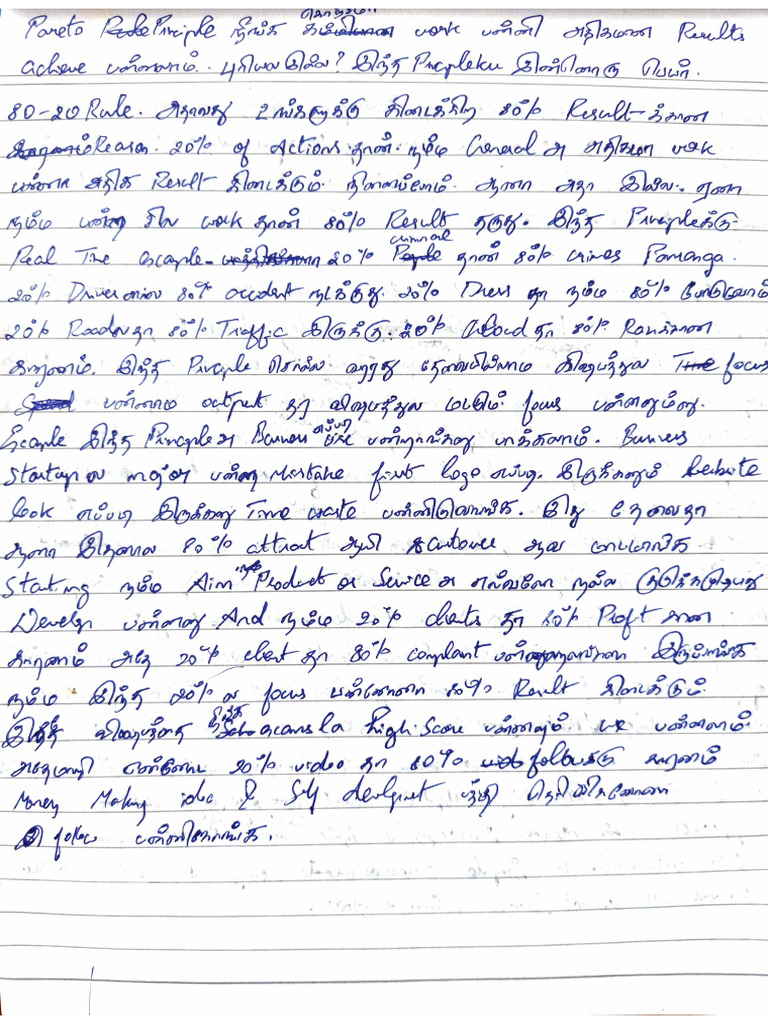 கொஞ்சமா
Pareto Principle நீங்க work பண்ணி அதிகமான Results
achieve பண்ணலாம். புரியலஇல்ல? இந்த Principleku இன்னொரு பெயர்.
80-20 Rule. அதாவது உங்களுக்கு கிடைக்கிற 80% Result க்கான
Reason. 20% of Actions தான். நம்ம General அ அதிகமா work
பண்ணா அதிக Result கிடைக்கும் நினைப்போம். ஆனா அதா இல்ல. ஏனா
நம்ம பண்ற சில work தான் 80% Result தருது. இந்த Principleக்கு
Real Time example 20% criminal தான் 80% crimes Pannanga.
20% Driversால 80% accident நடக்குது. 20% Dress தா நம்ம 80% போடுவோம்
20% Roadலதா 80% Traffic இருக்கு. 20% Cloud தா 80% Rainக்கான
காரணம். இந்த Principle சொல்ல வரது தேவையில்லாம விஷயத்துல focus
பண்ணாம output தர விஷயத்துல மட்டும் focus பண்ணனும்னு.
Example இந்த Principle அ Business எப்படி use பண்றாங்கனு பாக்கலாம். Business
Startup ல major பண்ற mistake first logo எப்படி இருக்கனும் website
look எப்படி இருக்கனு Time waste பண்ணிடுவாங்க. இது தேவைதா
ஆனா இதனால 80% attract ஆயி customer ஆவ மாட்டாங்க
Starting நம்ம Aim Product or Service அ எவ்வளோ நல்ல குடுக்கமுடியுது
Develop பண்ணனு. And நம்ம 20% clients தா 80% Profit கான
காரணம் அதே 20% client தா 80% complaint பண்ணுறவங்களா இருப்பாங்க
நம்ம இந்த 20% ல focus பண்ணோனா 80% Result கிடைக்கும்.
இந்த விஷயத்தை நீங்க examsla high score பண்ணவும் use பண்ணலாம்.
அதேமாறி என்னோட 20% video தா 80% followக்கு காரணம்
Money Making idea & Self development பத்தி தெரிஞ்சிக்கனோனா
follow பண்ணிகோங்க.